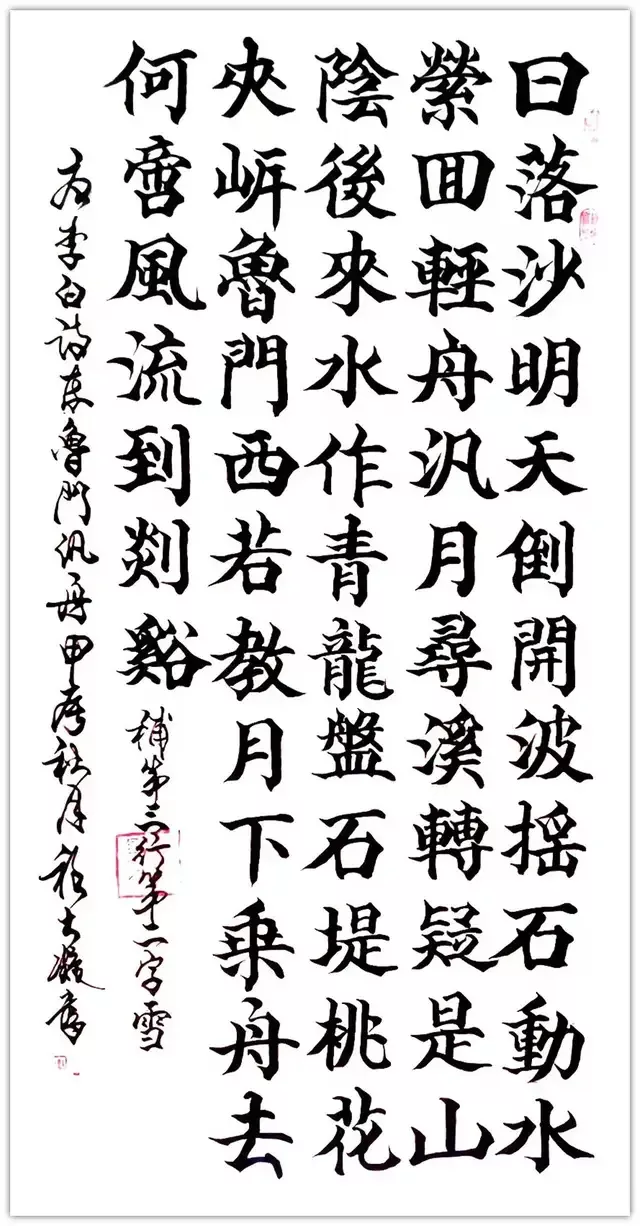 日落沙明天倒開波摇石動水
縈囬輕舟汎月尋溪轉疑是山
陰後來水作青龍盤石堤桃花
夾岍魯門西若教月下乗舟去
何啻風流到剡谿
補第三行第二字雪
右李白詩東魯門汎舟甲辰秋月書